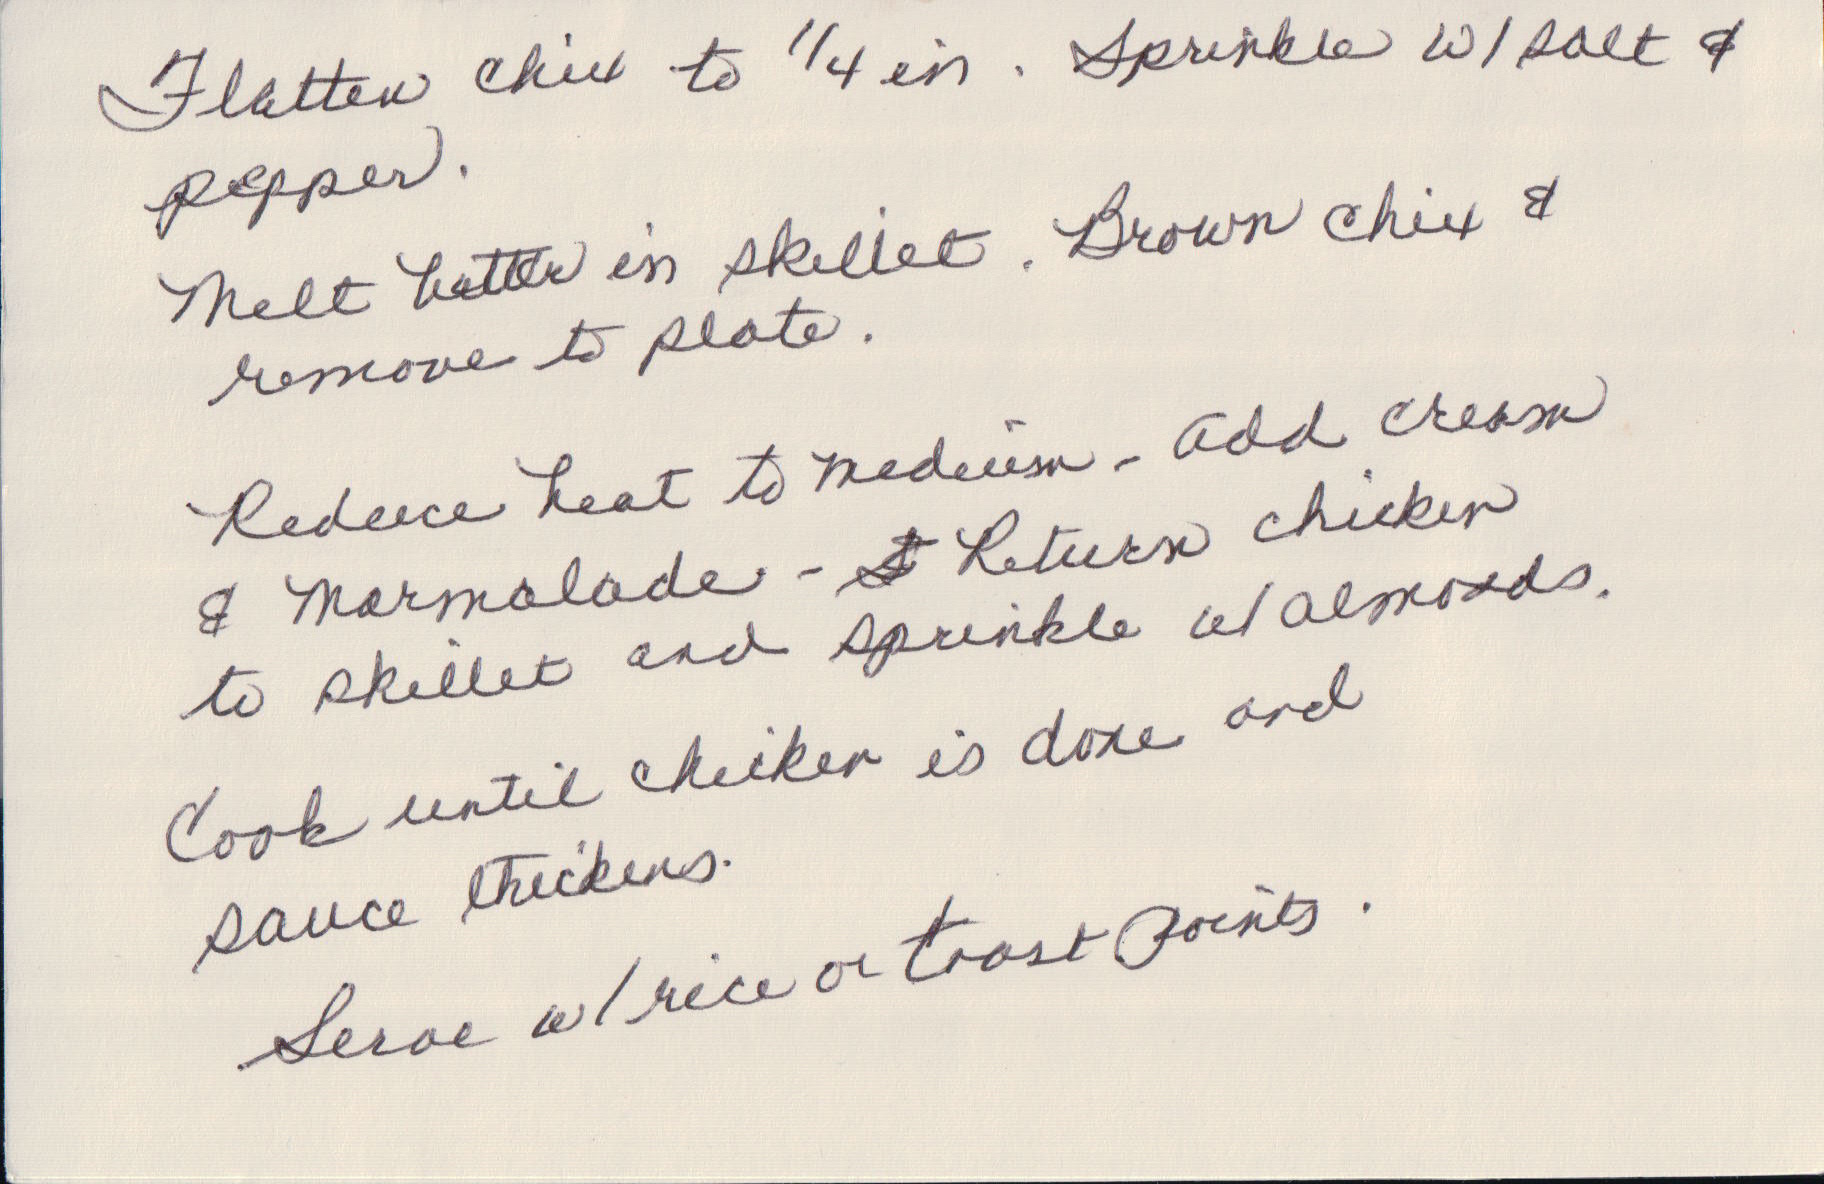 Flatten chix to 1/4 in. Sprinkle w/ salt &
pepper.
Melt butter in skillet. Brown chix &
remove to plate.
Reduce heat to medium - add cream
& marmalade - Return chicken
to skillet and sprinkle w/ almonds.
Cook until chicken is done and
sauce thickens.
Serve w/ rice or toast points.